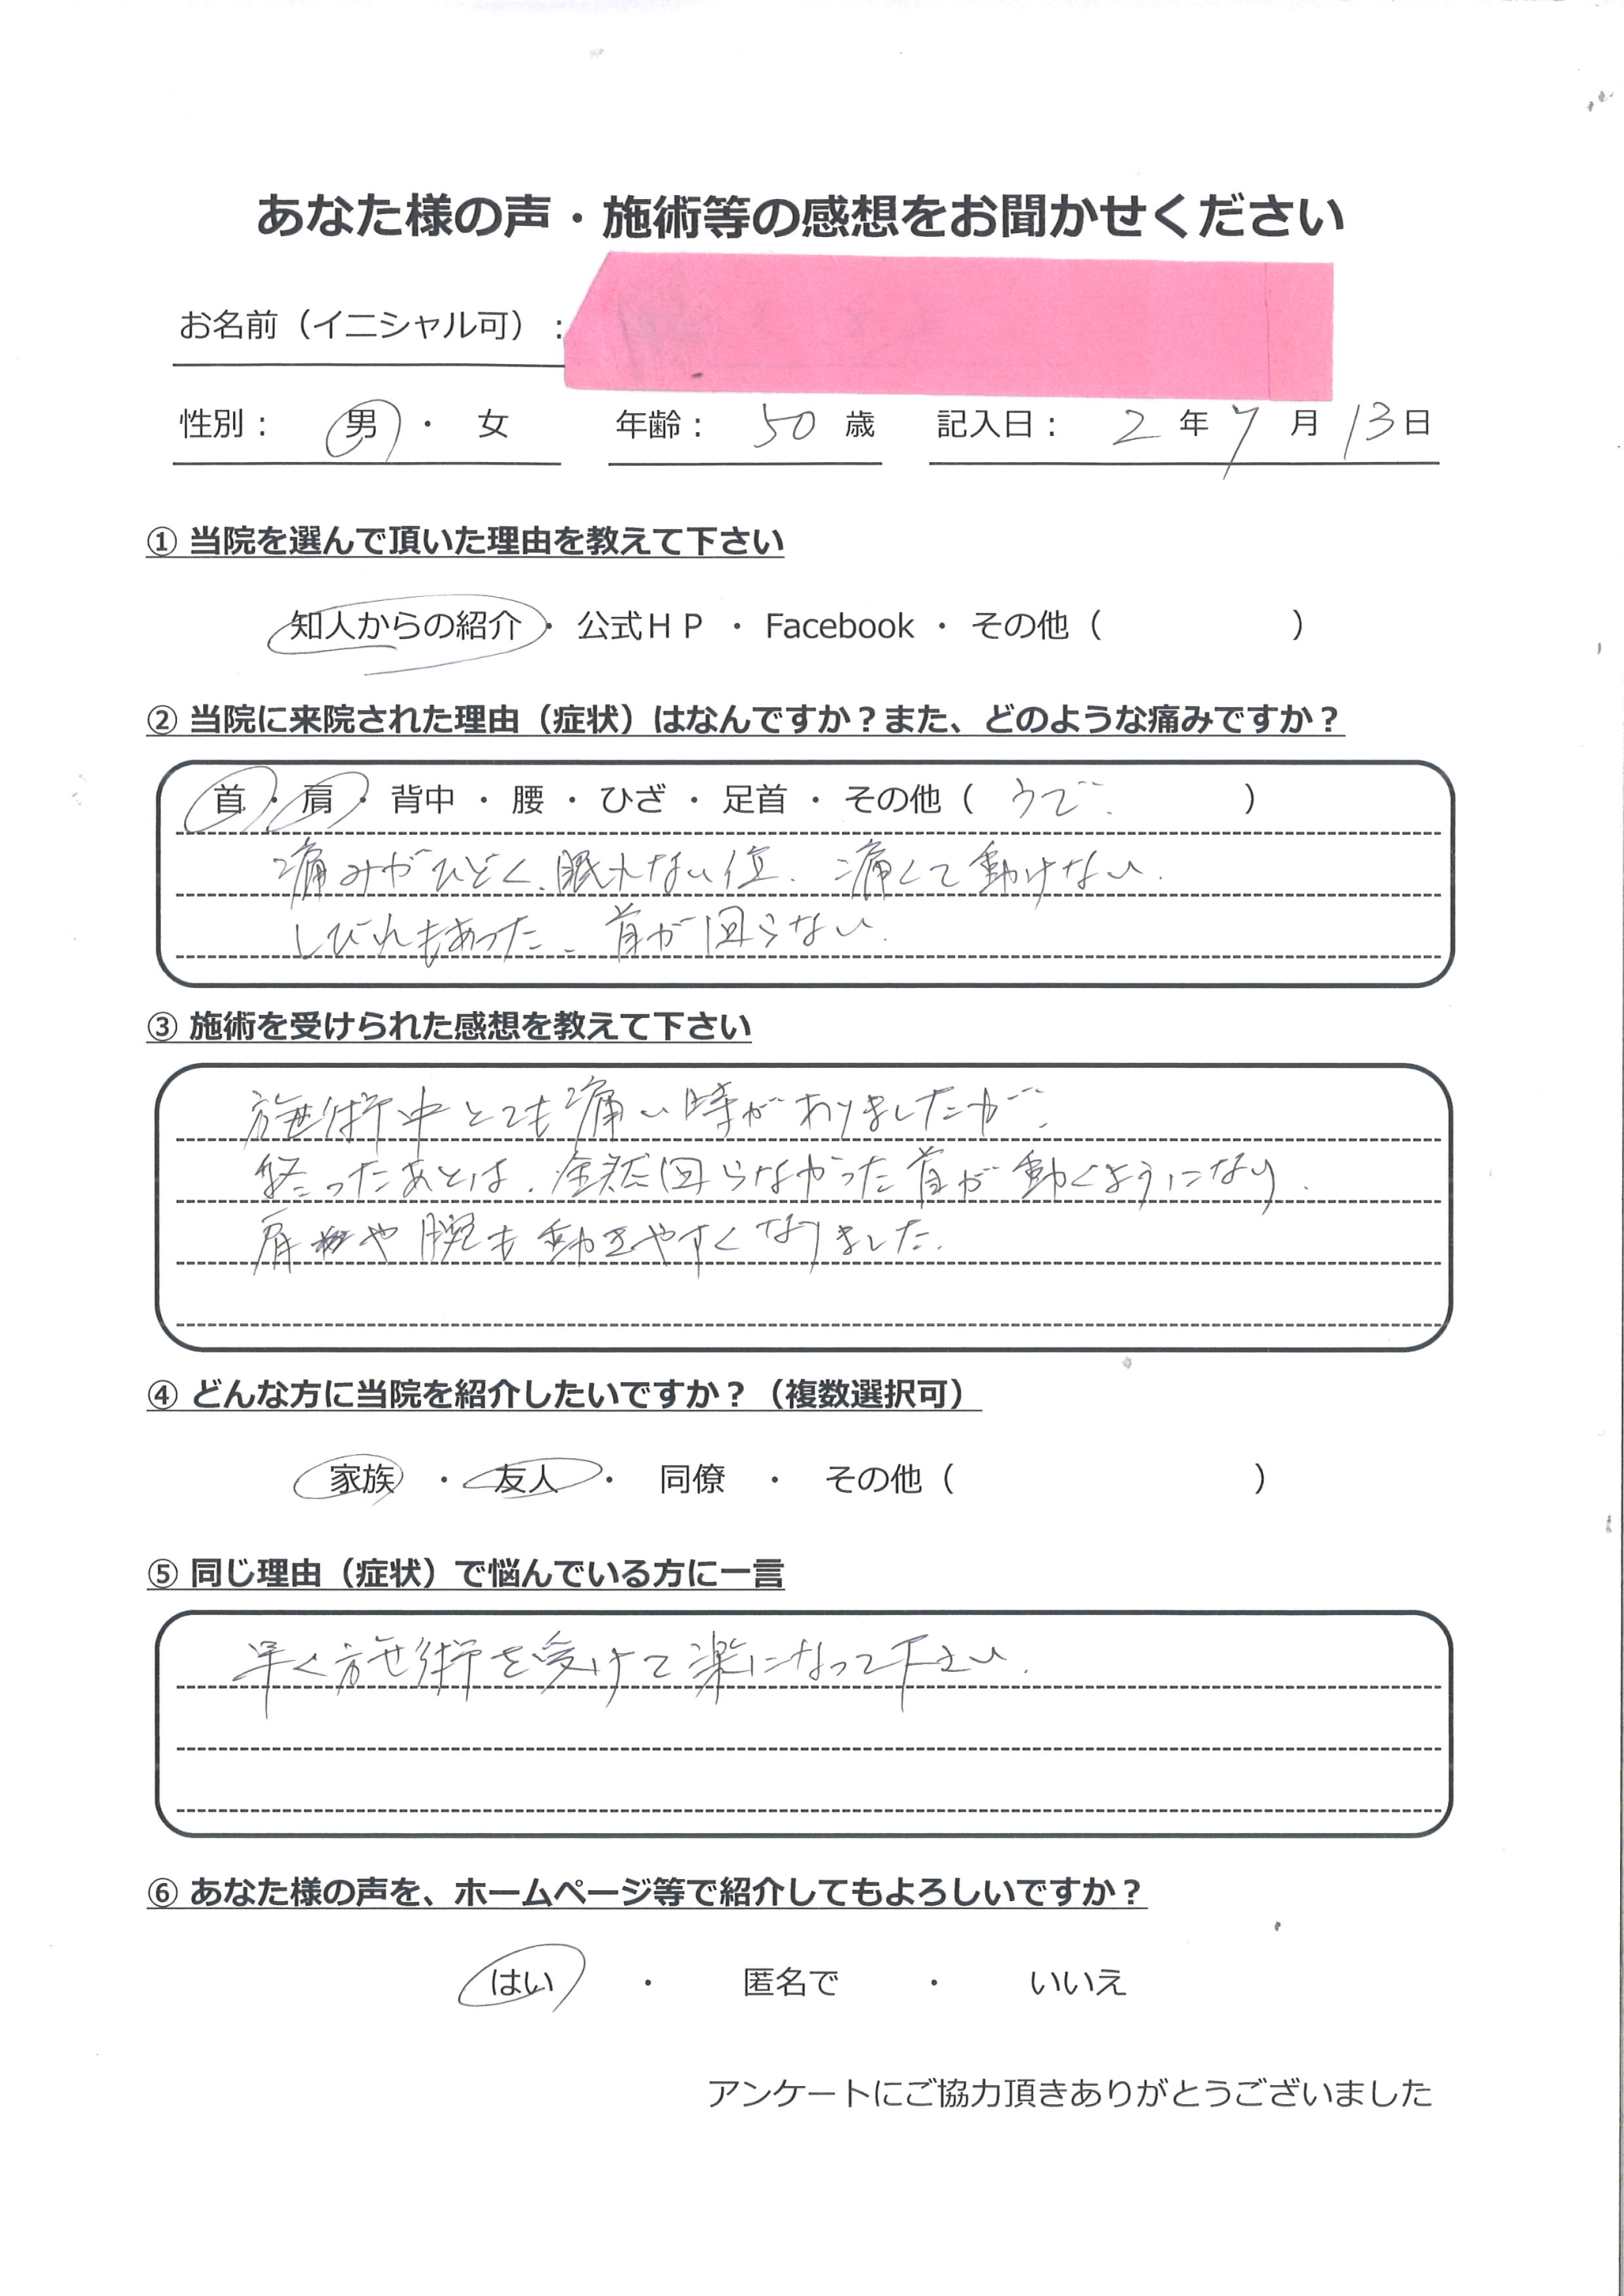 あなた様の声・施術等の感想をお聞かせください
お名前（イニシャル可）：
性別： 男 ・ 女 年齢： 50 歳 記入日： 2 年 7 月 13 日
① 当院を選んで頂いた理由を教えて下さい
知人からの紹介 ・ 公式ＨＰ ・ Facebook ・ その他（ ）
② 当院に来院された理由（症状）はなんですか？また、どのような痛みですか？
首 ・ 肩 ・ 背中 ・ 腰 ・ ひざ ・ 足首 ・ その他（ うで ）
痛みがひどく、眠れない位、痛くて動けない。
しびれもあった。首が回らない。
③ 施術を受けられた感想を教えて下さい
施術中とても痛い時がありましたが、
終ったあとは、全然回らなかった首が動くようになり、
肩や腕も動きやすくなりました。
④ どんな方に当院を紹介したいですか？（複数選択可）
家族 ・ 友人 ・ 同僚 ・ その他（ ）
⑤ 同じ理由（症状）で悩んでいる方に一言
早く施術を受けて楽になって下さい。
⑥ あなた様の声を、ホームページ等で紹介してもよろしいですか？
はい ・ 匿名で ・ いいえ
アンケートにご協力頂きありがとうございました